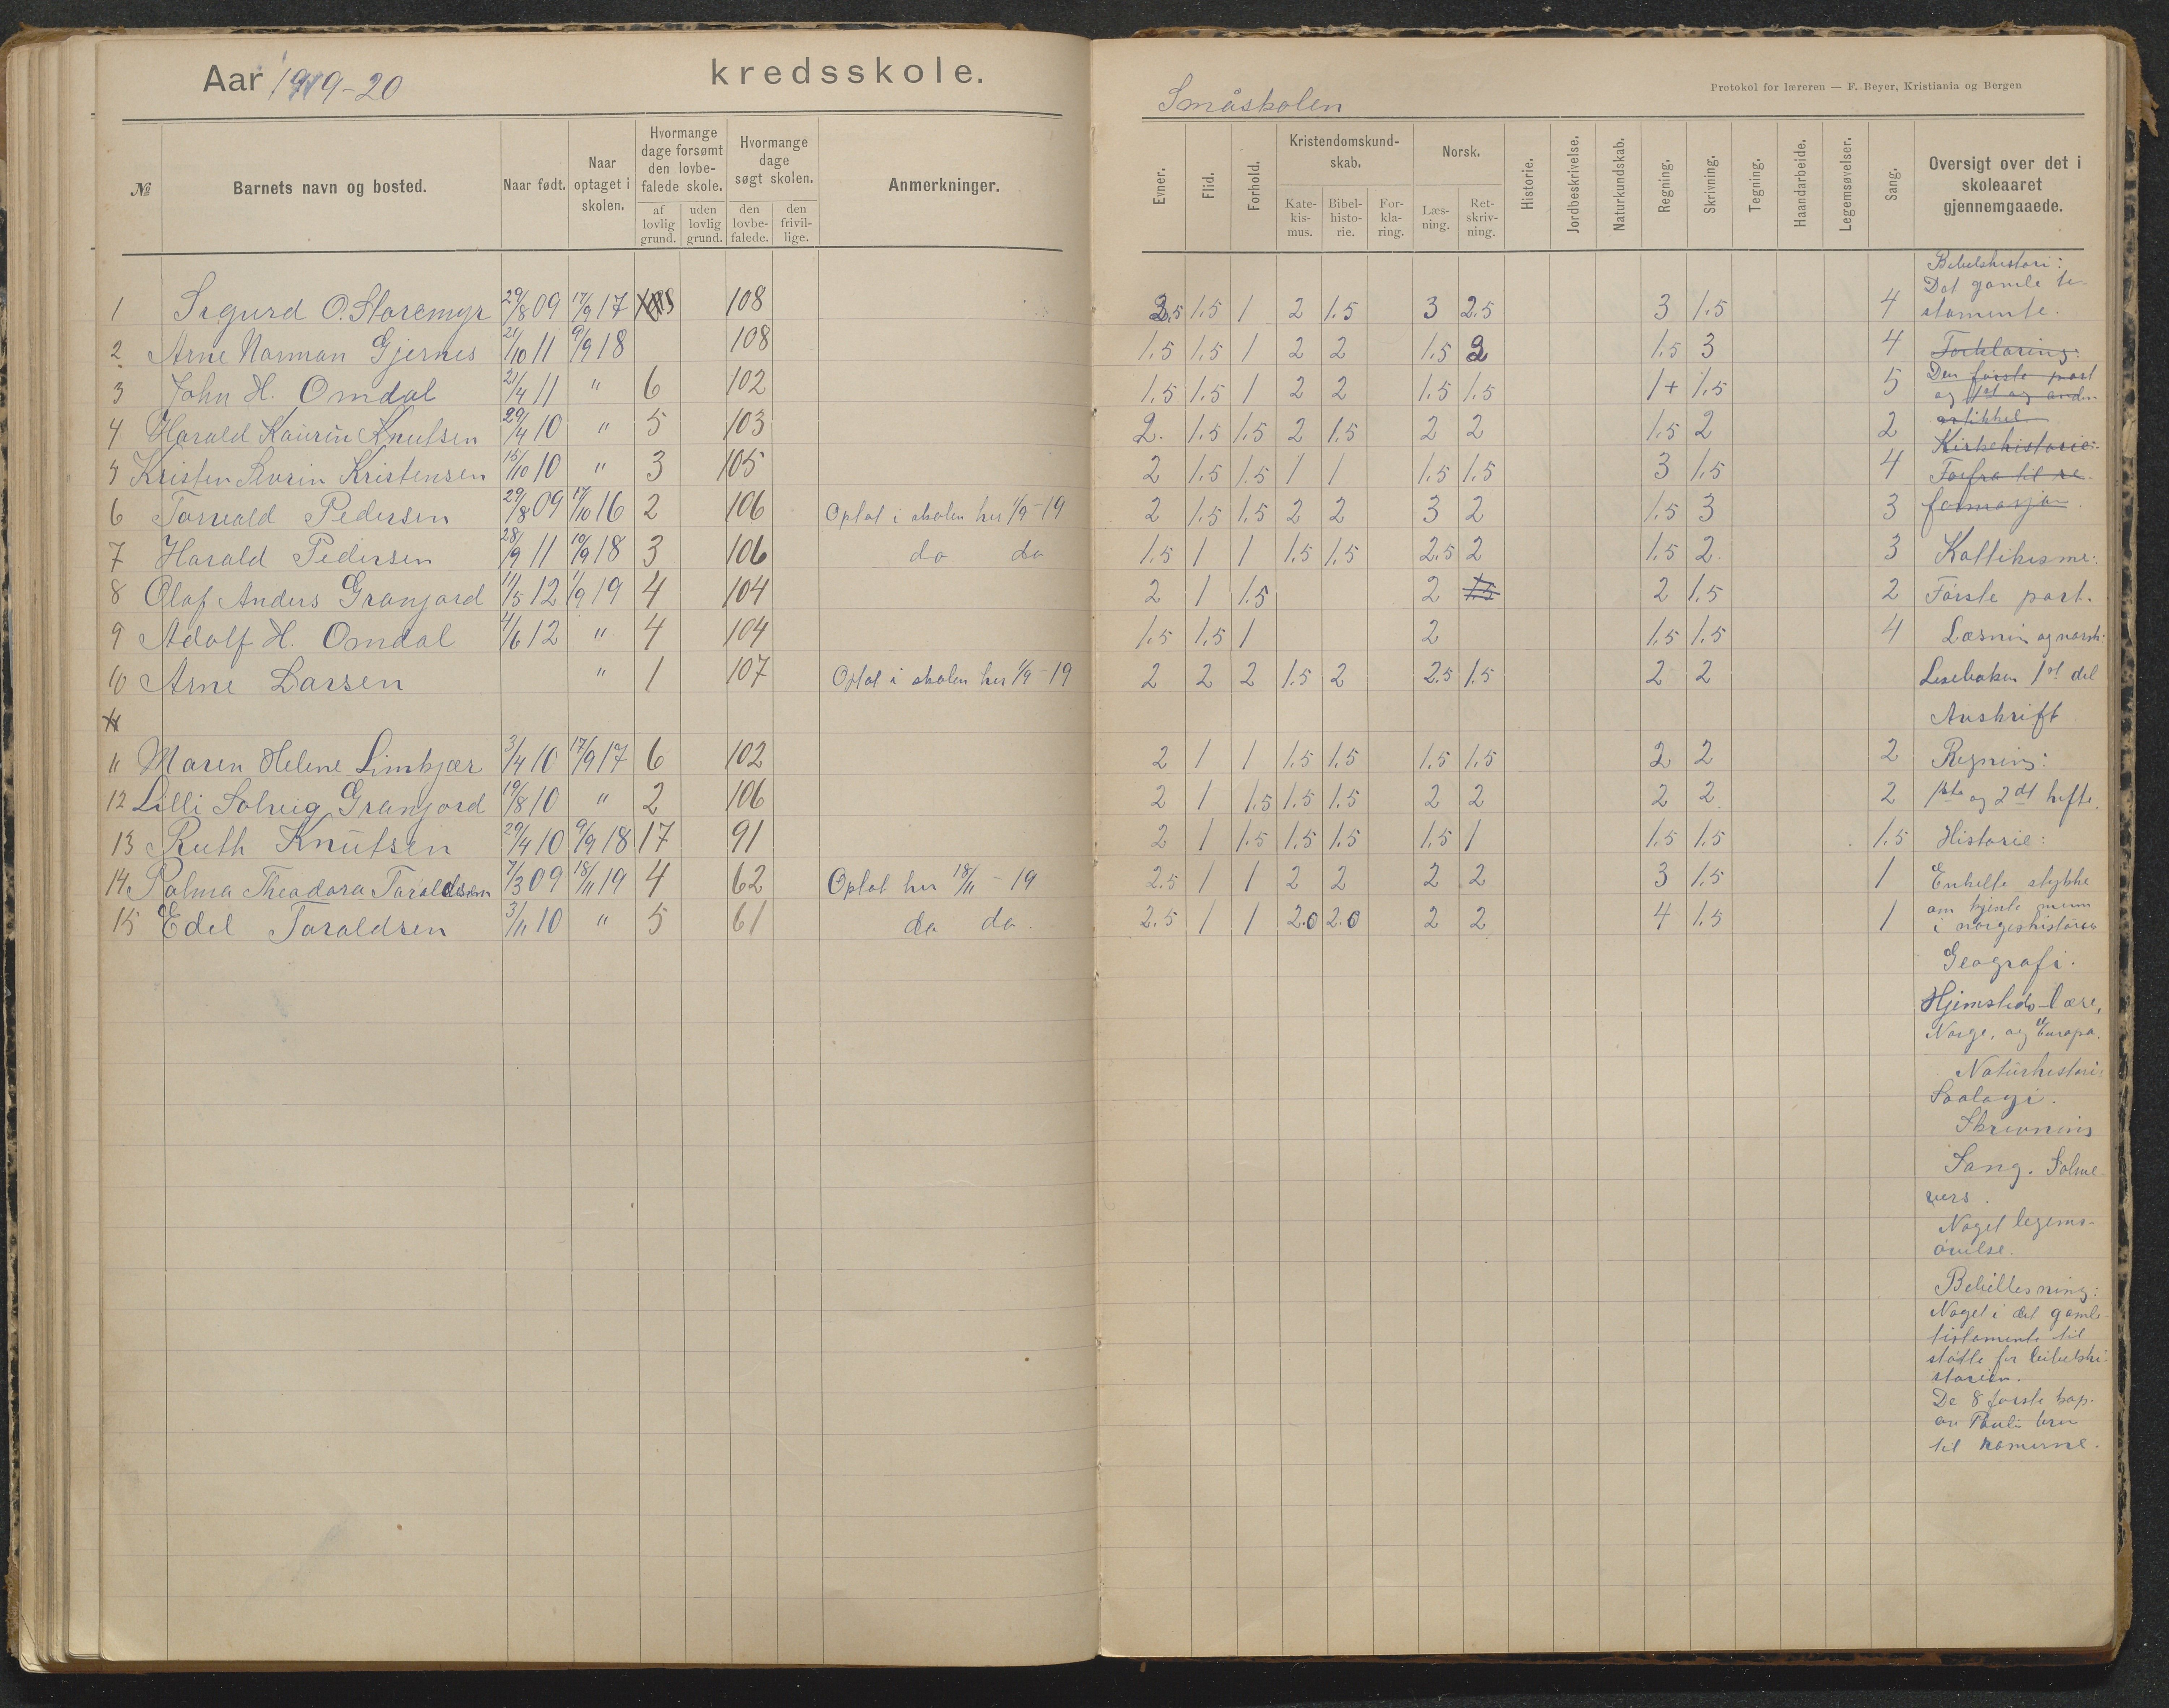 Aar 1919-20 kredsskole.
№ Barnets navn og bosted. Naar født. Naar optaget i skolen. Hvormange dage forsømt den lovbefalede skole. af lovlig grund. uden lovlig grund. Hvormange dage søgt skolen. den lovbefalede. den frivillige. Anmerkninger.
1 Sigurd O. Storemyr 29/8 09 17/9 17 108
2 Arne Norman Gjernes 21/10 11 9/9 18 108
3 John H. Omdal 21/4 11 " 6 102
4 Harald Kaurin Knutsen 29/4 10 " 5 103
5 Kristen Severin Kristensen 15/10 10 " 3 105
6 Torvald Pedersen 29/8 09 17/10 16 2 106 Optat i skolen her 1/9-19
7 Harald Pedersen 28/9 11 10/9 18 3 106 do do
8 Olaf Anders Granjord 11/5 12 1/9 19 4 104
9 Adolf H. Omdal 4/6 12 " 4 104
10 Arne Larsen " 1 107 Optat i skolen her 1/9-19
11
11 Maren Helene Limkjær 3/4 10 17/9 17 6 102
12 Lilli Solveig Granjord 19/8 10 " 2 106
13 Ruth Knutsen 29/4 10 9/9 18 17 91
14 Palma Theodora Taraldsen 7/3 09 18/11 19 4 62 Optat her 18/11-19
15 Edel Taraldsen 3/11 10 " 5 61 do do.
Småskolen
Protokol for læreren — F. Beyer, Kristiania og Bergen
Evner. Flid. Forhold. Kristendomskundskab. Katekismus. Bibelhistorie. Forklaring. Norsk. Læsning. Retskrivning. Historie. Jordbeskrivelse. Naturkundskab. Regning. Skrivning. Tegning. Haandarbeide. Legemsøvelser. Sang. Oversigt over det i skoleaaret gjennemgaaede.
2.5 1.5 1 2 1.5 3 2.5 3 1.5 4
1.5 1.5 1 2 2 1.5 2 1.5 3 4
1.5 1.5 1 2 2 1.5 1.5 1+ 1.5 5
2. 1.5 1.5 2 1.5 2 2 1.5 2 2
2 1.5 1.5 1 1 1.5 1.5 3 1.5 4
2 1.5 1.5 2 2 3 2 1.5 3 3
1.5 1 1 1.5 1.5 2.5 2 1.5 2. 3
2 1 1.5 2 1.5 2 1.5 2
1.5 1.5 1 2 1.5 1.5 4
2 2 2 1.5 2 2.5 1.5 2 2
2 1 1 1.5 1.5 1.5 1.5 2 2 2
2 1 1.5 1.5 1.5 2 2 2 2 2
2 1 1.5 1.5 1.5 1.5 1 1.5 1.5 1.5
2.5 1 1 2 2 2 2 3 1.5 1
2.5 1 1 2.0 2.0 2 2 4 1.5 1
Bibelshistori:
Det gamle te-
stamente.
Forklaring:
Den første part
og 1st og anden
artikkel.
Kirkehistorie:
Forfra til re-
formasjon.
Kattikisme:
Første part.
Læsnin og norsk:
Leseboken 1st del
Avskrift
Regning:
1ste og 2dt hefte.
Historie:
Enkelte stykke
om kjente menn
i norgeshistorien
Geografi.
Hjemsteds-lære,
Norge, og Europa.
Naturhistori:
Soologi.
Skrivning
Sang. Salme-
vers.
Noget legems-
øvelse.
Bibellesning:
Noget i det gamle
testamente til
støtte for bibelshi-
storien.
De 8 første kap.
av Pauli brev
til romerne.